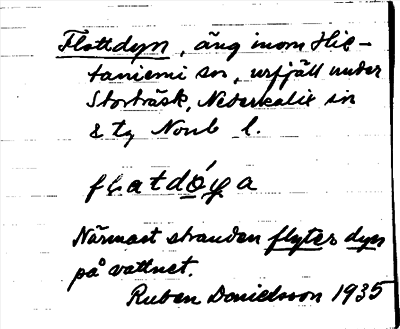 Flottdyn, äng inom Hie-
taniemi sn, urfjäll under
Storträsk, Nederkalix sn
& tg Norrb l.
Närmast stranden flyter dyn
på vattnet.
Ruben Danielsson 1935